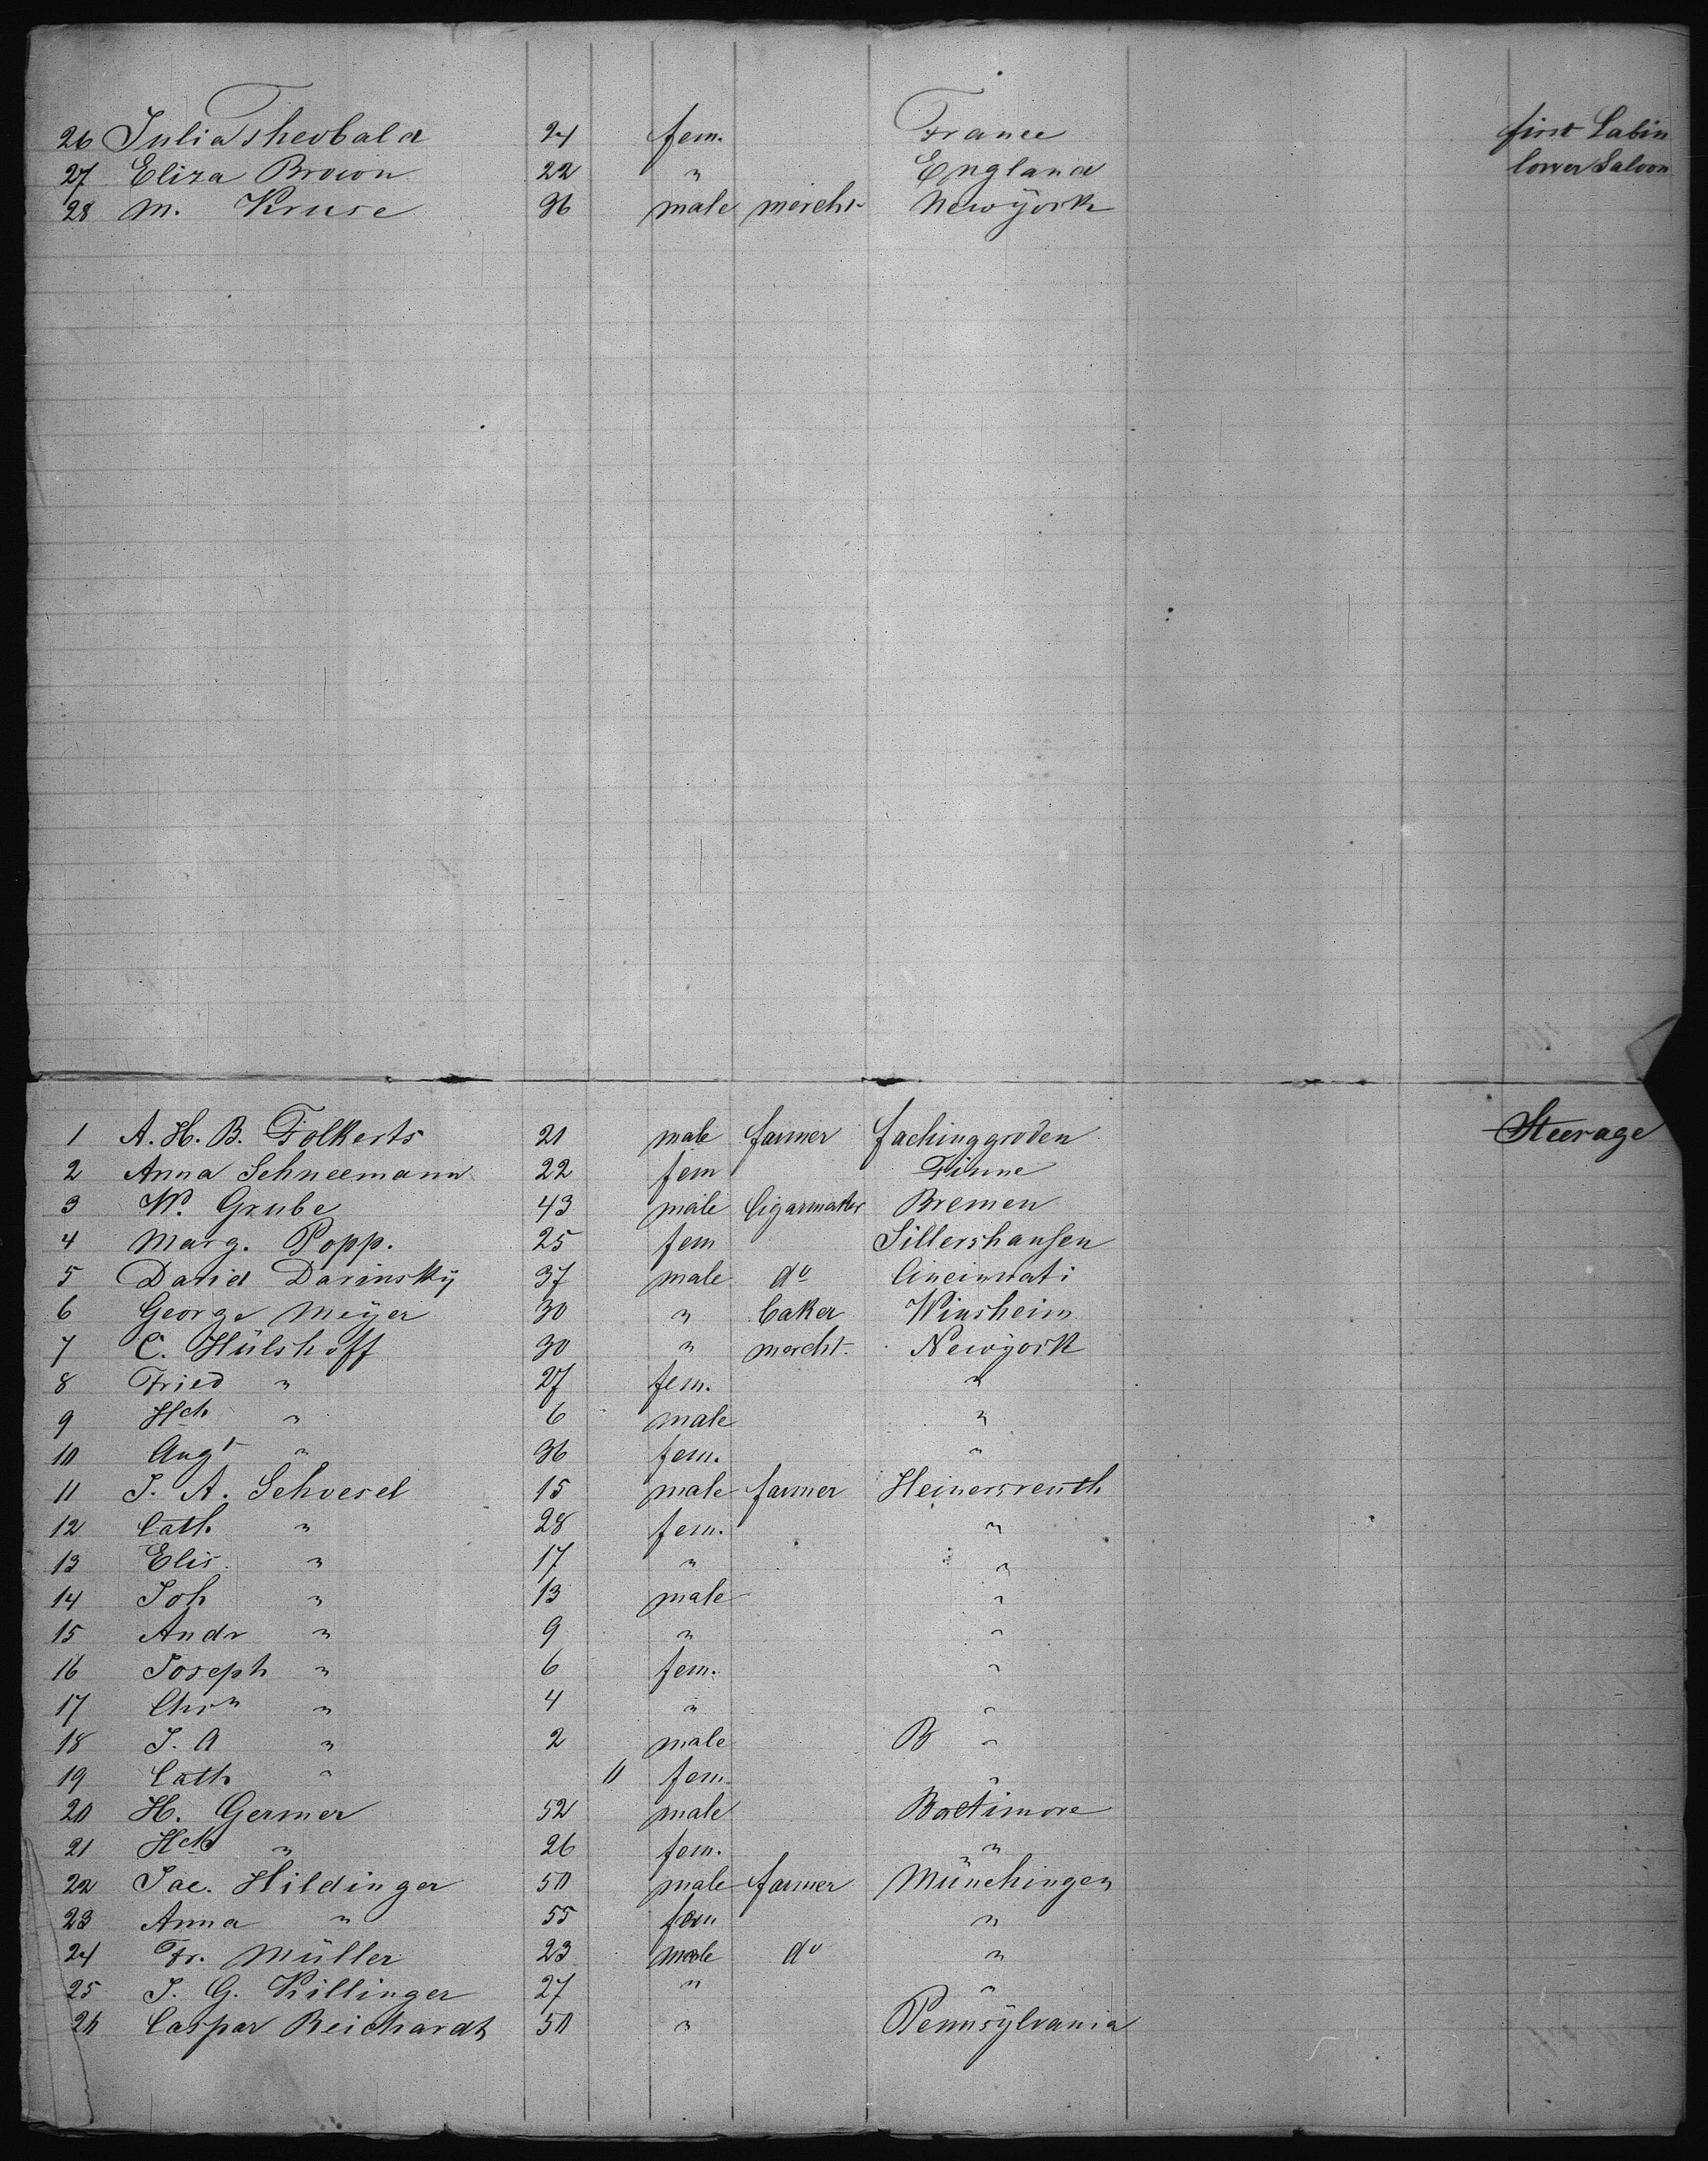 26 Julia Theobald 24 fem. France first Cabin
27 Eliza Brown 22 " England lower Saloon
28 M. Kruse 36 male mercht Newÿork
1 A. H. B. Folkerts 21 male farmer fachinggroden Steerage
2 Anna Schneemann 22 fem Finne
3 W. Grube 43 male Cigarmaker Bremen
4 Marg. Popp. 25 fem Sillershausen
5 David Darinskÿ 37 male do Cincinnati
6 George Meÿer 30 " baker Winsheim
7 C. Hülshoff 30 " mercht. Newÿork
8 Fried " 27 fem. "
9 Hch " 6 male "
10 Augt " 36 fem. "
11 J. A. Schoesel 15 male farmer Heinersreuth
12 Cath " 28 fem. "
13 Elis. " 17 " "
14 Joh " 13 male "
15 Andr " 9 " "
16 Joseph " 6 fem. "
17 Chrn " 4 " "
18 J. A " 2 male B "
19 Cath " 11 fem. "
20 H. Germer 52 male Baltimore
21 Hch " 26 fem. "
22 Jac. Hildinger 50 male farmer Münchingen
23 Anna " 55 fem "
24 Fr. Müller 23 male do "
25 J. G. Killinger 27 " "
26 Caspar Reichardt 50 " Pennsÿlvania